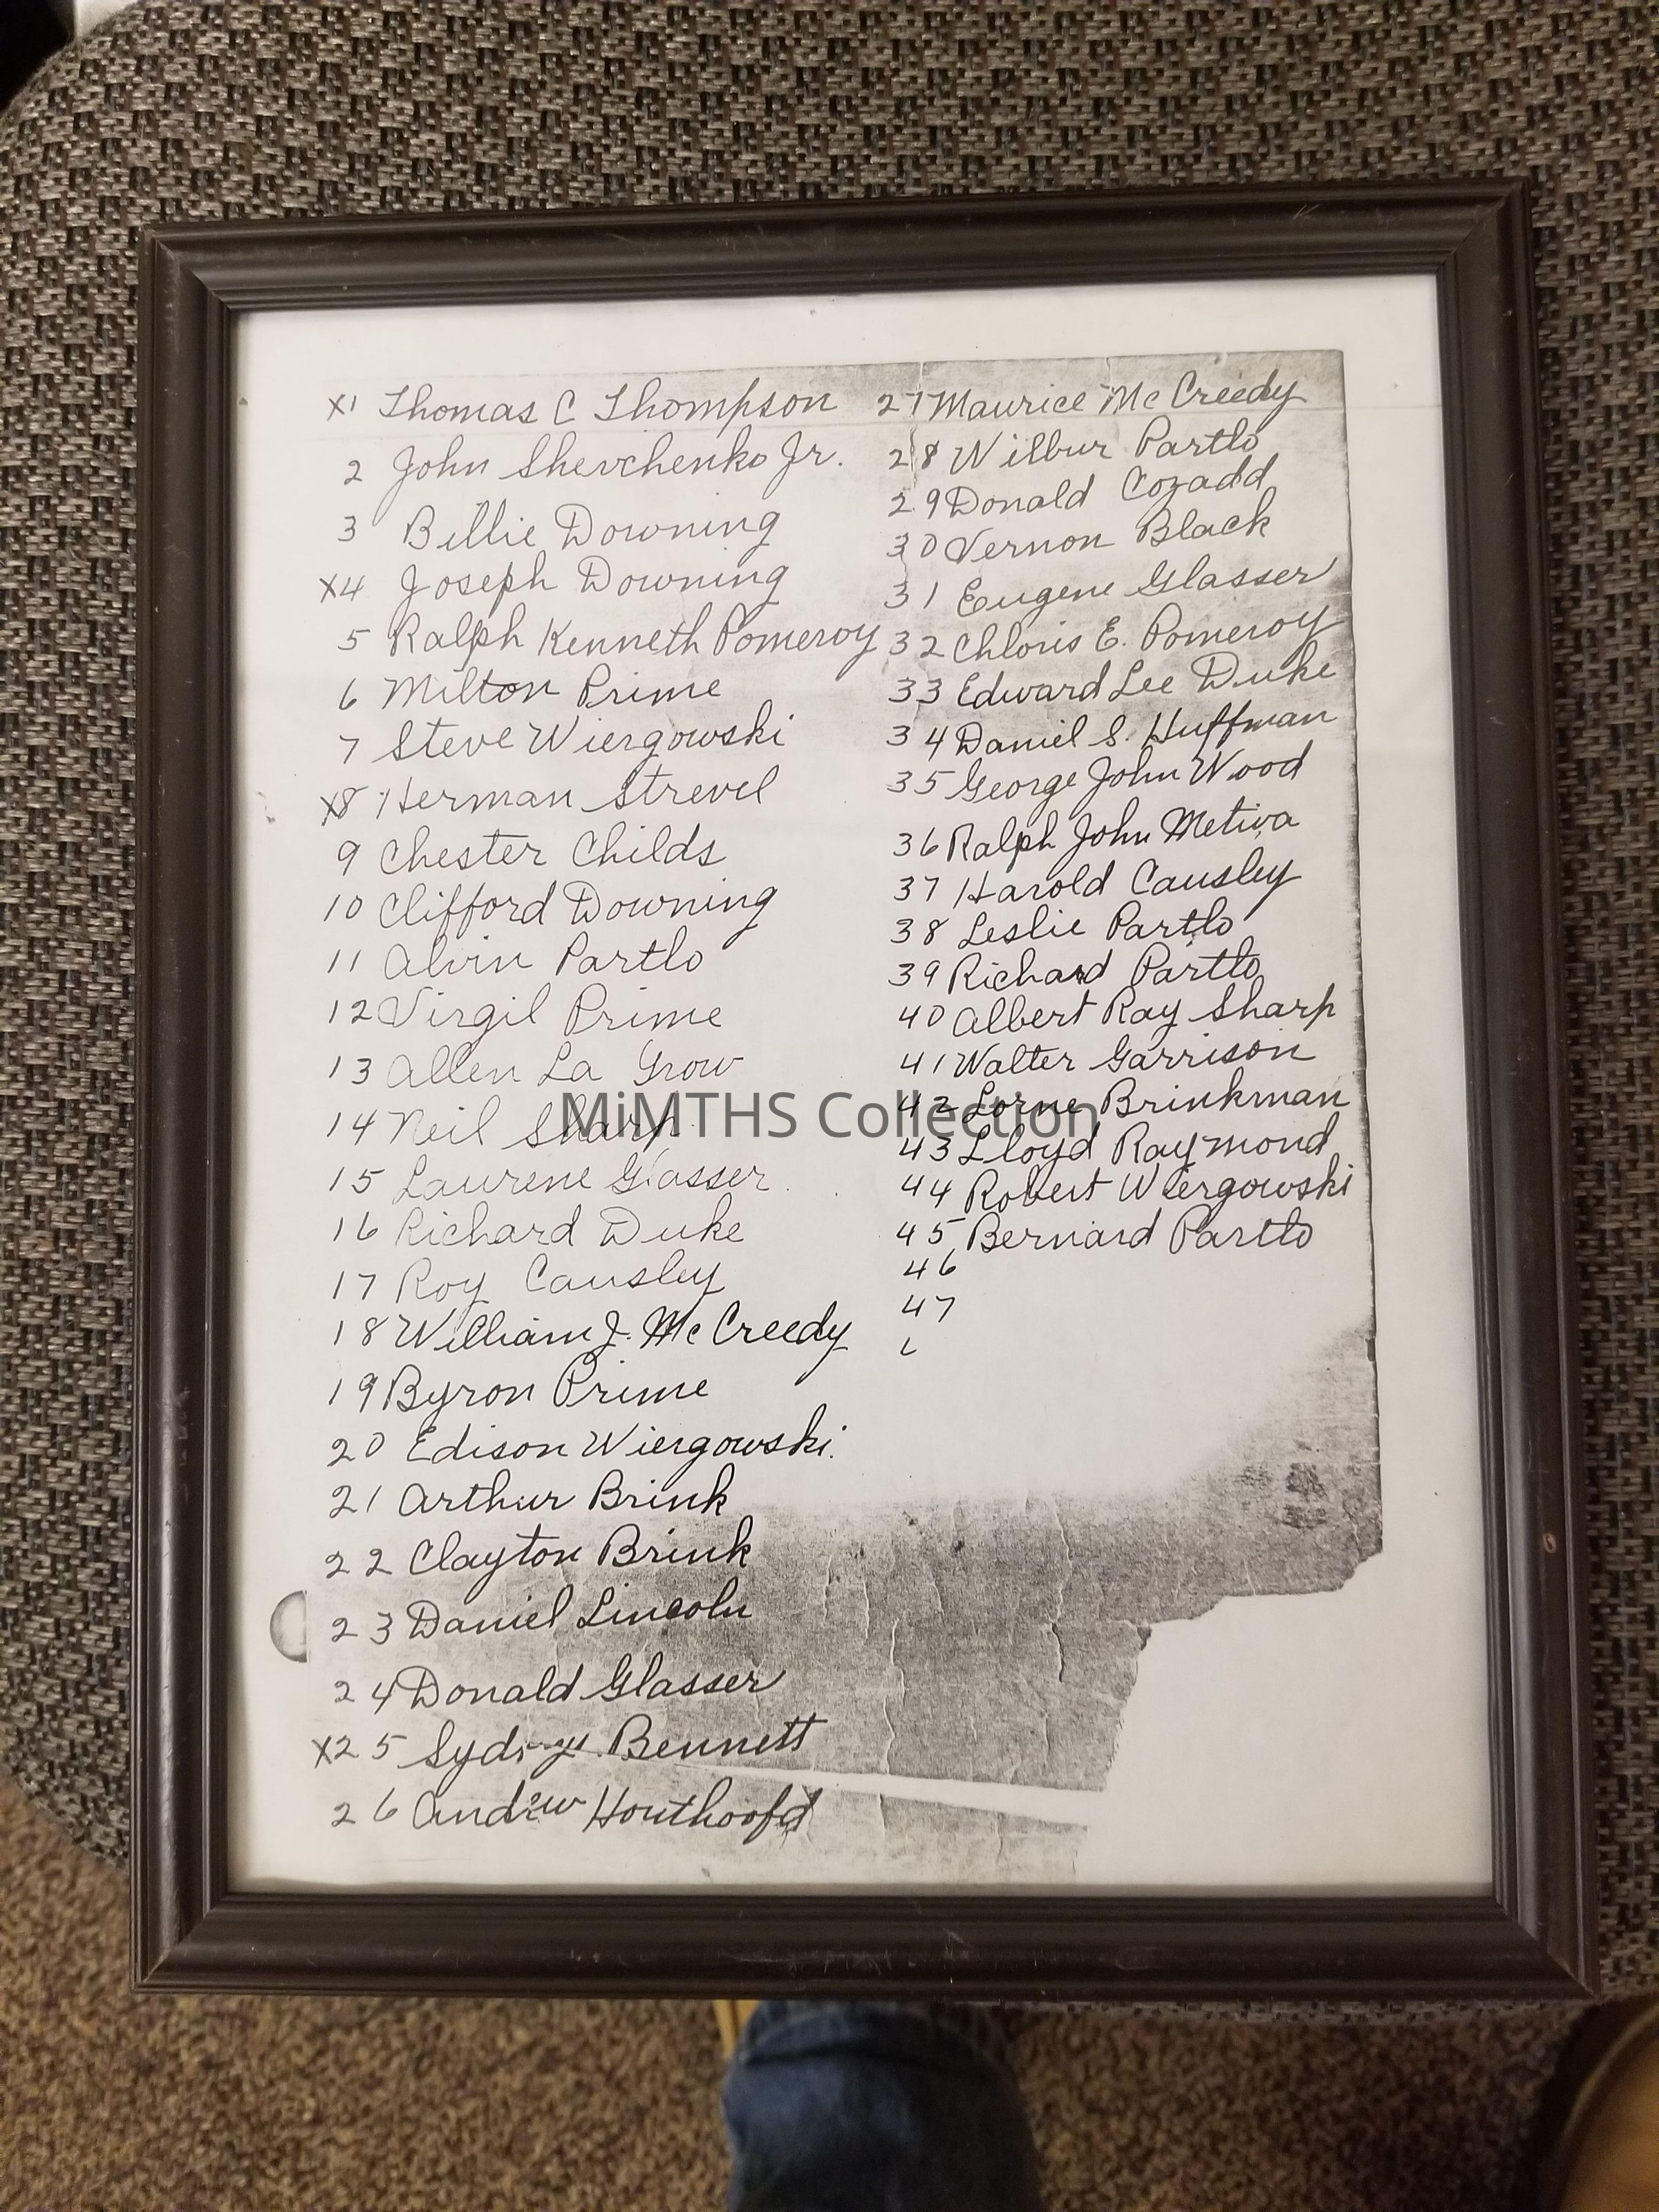 X1 Thomas C Thompson
2 John Shevchenko Jr.
3 Billie Downing
X4 Joseph Downing
5 Ralph Kenneth Pomeroy
6 Milton Prime
7 Steve Wiergowski
X8 Herman Strevel
9 Chester Childs
10 Clifford Downing
11 Alvin Partlo
12 Virgil Prime
13 Allen La Grow
14 Neil Sharp
15 Laurene Glasser
16 Richard Duke
17 Roy Causley
18 William J. McCreedy
19 Byron Prime
20 Edison Wiergowski.
21 Arthur Brink
22 Clayton Brink
23 Daniel Lincoln
24 Donald Glasser
X25 Bennett
26 Andrew Houthoofd
27 Maurice McCreedy
28 Wilbur Partlo
29 Donald Cozadd
30 Vernon Black
31 Eugene Glasser
32 Chloris E. Pomeroy
33 Edward Lee Duke
34 Daniel S. Huffman
35 George John Wood
36 Ralph John Metiva
37 Harold Causley
38 Leslie Partlo
39 Richard Partlo
40 Albert Ray Sharp
41 Walter Garrison
42 Lorne Brinkman
43 Lloyd Raymond
44 Robert Wiergowski
45 Bernard Partlo
46
47
MiMTHS Collection